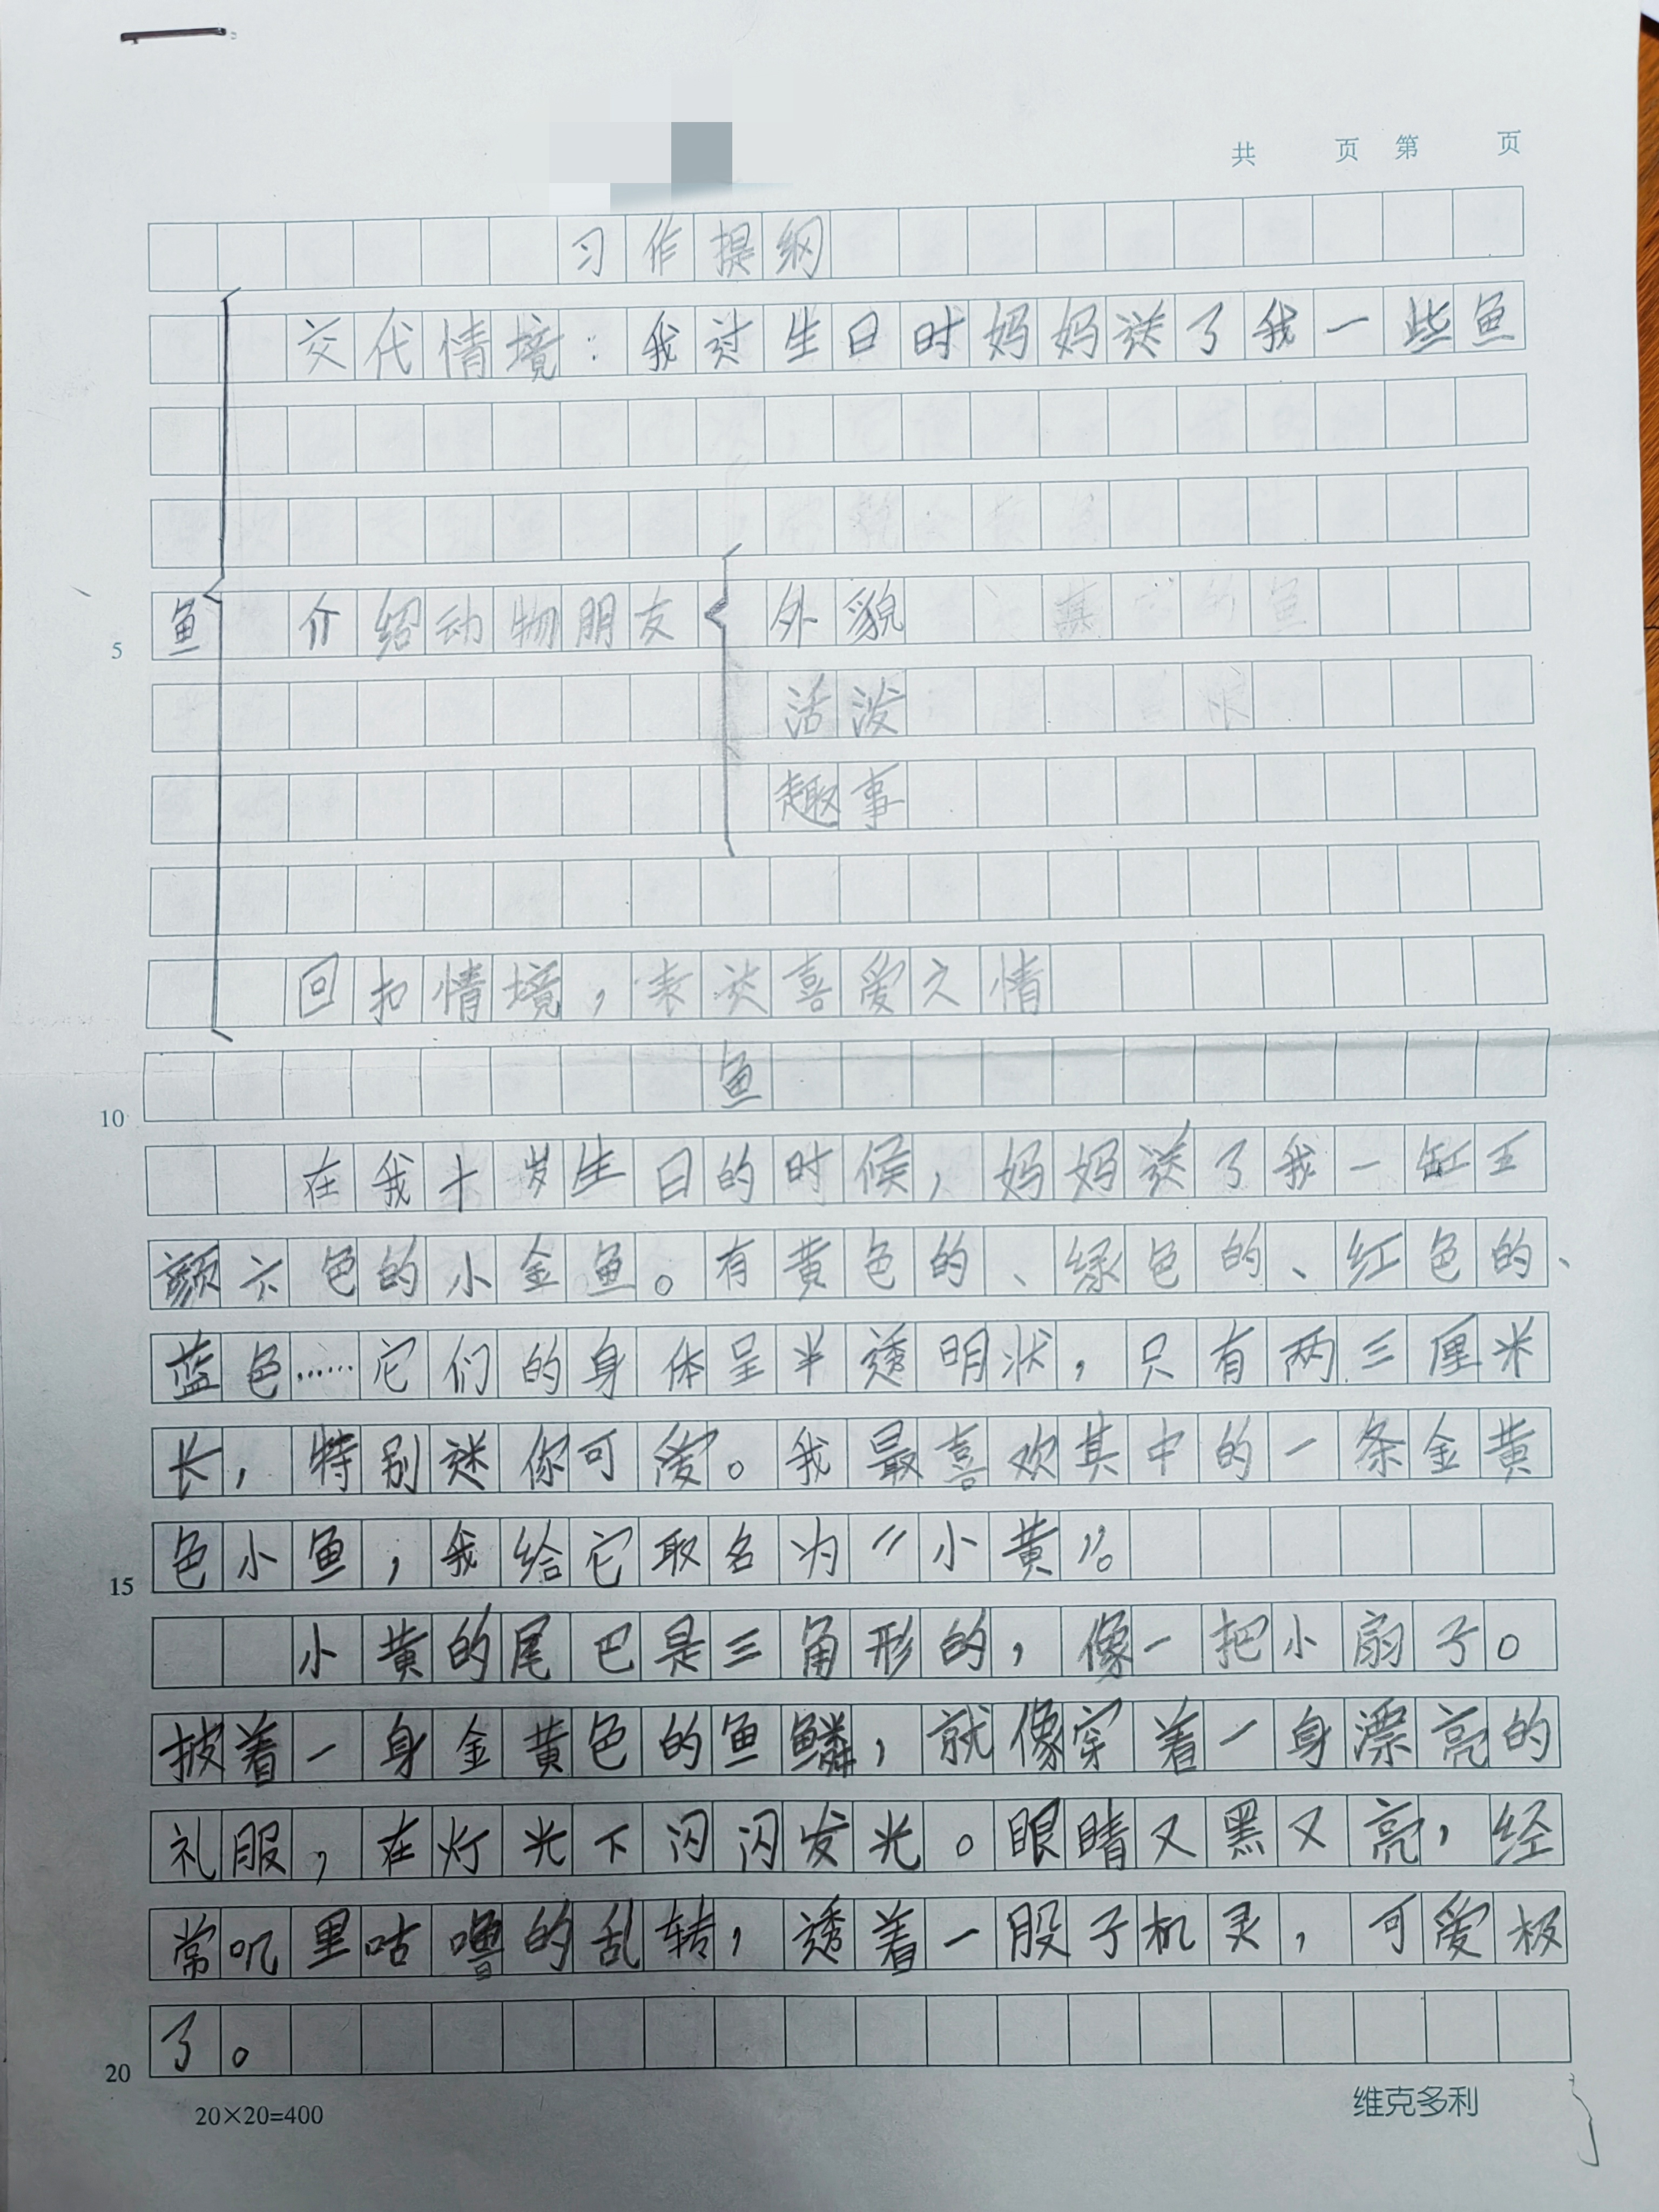 共 页 第 页
习作提纲
交代情境：我过生日时妈妈送了我一些鱼
5 鱼 介绍动物朋友 外貌
活泼
趣事
回扣情境，表达喜爱之情
10 鱼
在我十岁生日的时候，妈妈送了我一缸五
颜六色的小金鱼。有黄色的、绿色的、红色的、
蓝色……它们的身体呈半透明状，只有两三厘米
长，特别迷你可爱。我最喜欢其中的一条金黄
15 色小鱼，我给它取名为“小黄”。
小黄的尾巴是三角形的，像一把小扇子。
披着一身金黄色的鱼鳞，就像穿着一身漂亮的
礼服，在灯光下闪闪发光。眼睛又黑又亮，经
常叽里咕噜的乱转，透着一股子机灵，可爱极
20 了。
20×20=400
维克多利